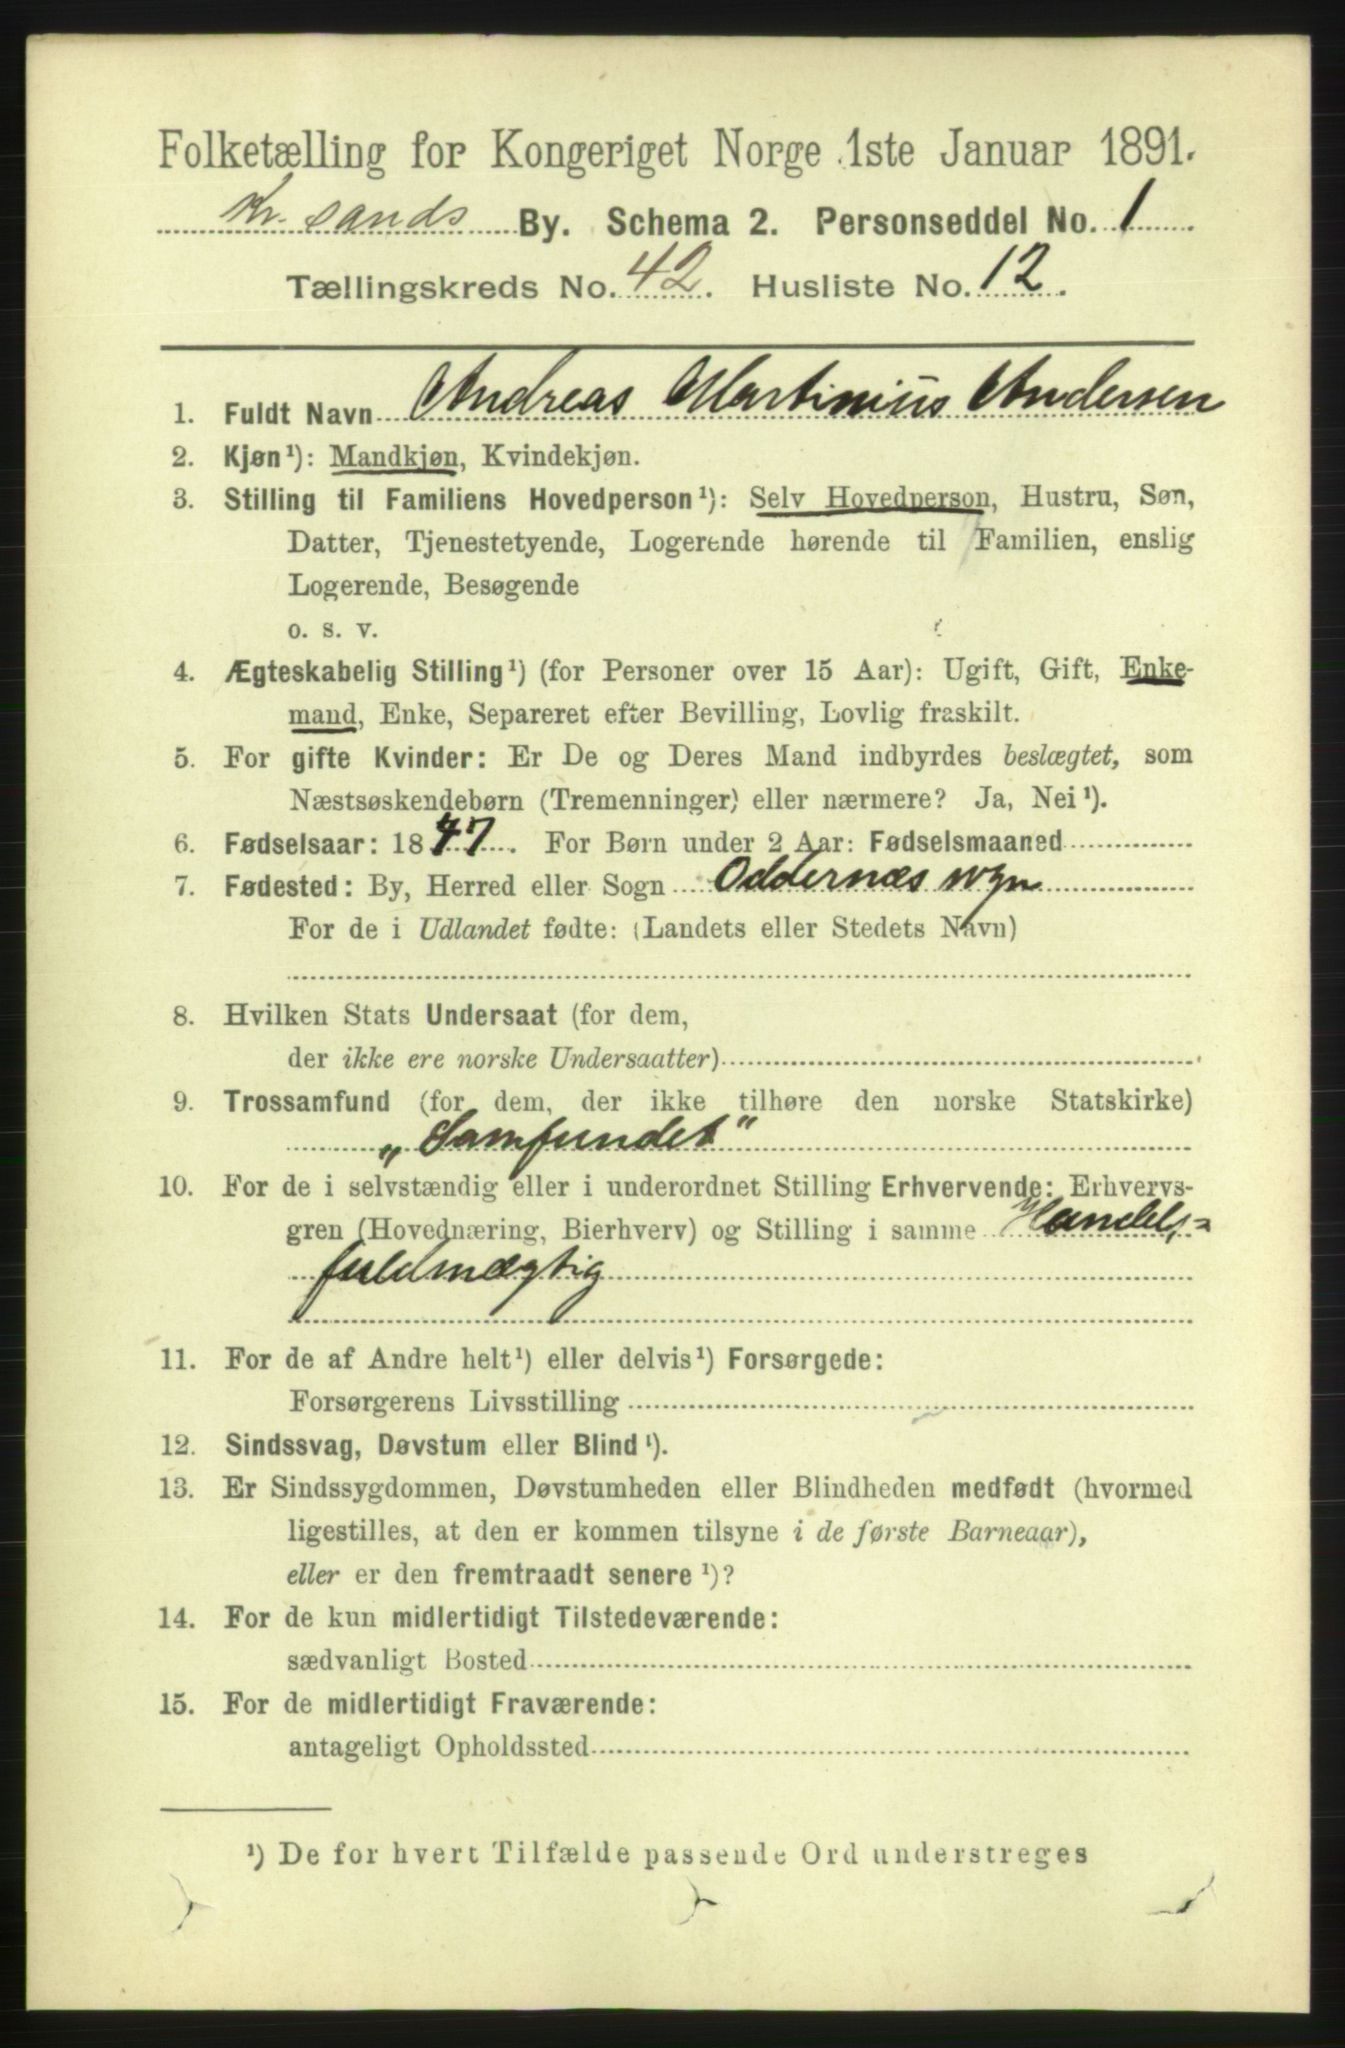 Folketælling for Kongeriget Norge 1ste Januar 1891.
Kr. sands By. Schema 2. Personseddel No. 1
Tællingskreds No. 42. Husliste No. 12.
1. Fuldt Navn Andreas Martinius Andersen
2. Kjøn¹): Mandkjøn, Kvindekjøn.
3. Stilling til Familiens Hovedperson¹): Selv Hovedperson, Hustru, Søn,
Datter, Tjenestetyende, Logerende hørende til Familien, enslig
Logerende, Besøgende
o. s. v.
4. Ægteskabelig Stilling¹) (for Personer over 15 Aar): Ugift, Gift, Enke-
mand, Enke, Separeret efter Bevilling, Lovlig fraskilt.
5. For gifte Kvinder: Er De og Deres Mand indbyrdes beslægtet, som
Næstsøskendebørn (Tremenninger) eller nærmere? Ja, Nei¹).
6. Fødselsaar: 1847. For Børn under 2 Aar: Fødselsmaaned
7. Fødested: By, Herred eller Sogn Oddernæs sogn
For de i Udlandet fødte: (Landets eller Stedets Navn)
8. Hvilken Stats Undersaat (for dem,
der ikke ere norske Undersaatter)
9. Trossamfund (for dem, der ikke tilhøre den norske Statskirke)
„Samfundet"
10. For de i selvstændig eller i underordnet Stilling Erhvervende: Erhvervs-
gren (Hovednæring, Bierhverv) og Stilling i samme Handels=
fuldmægtig
11. For de af Andre helt¹) eller delvis¹) Forsørgede:
Forsørgerens Livsstilling
12. Sindssvag, Døvstum eller Blind¹).
13. Er Sindssygdommen, Døvstumheden eller Blindheden medfødt (hvormed
ligestilles, at den er kommen tilsyne i de første Barneaar),
eller er den fremtraadt senere¹)?
14. For de kun midlertidigt Tilstedeværende:
sædvanligt Bosted
15. For de midlertidigt Fraværende:
antageligt Opholdssted
¹) De for hvert Tilfælde passende Ord understreges